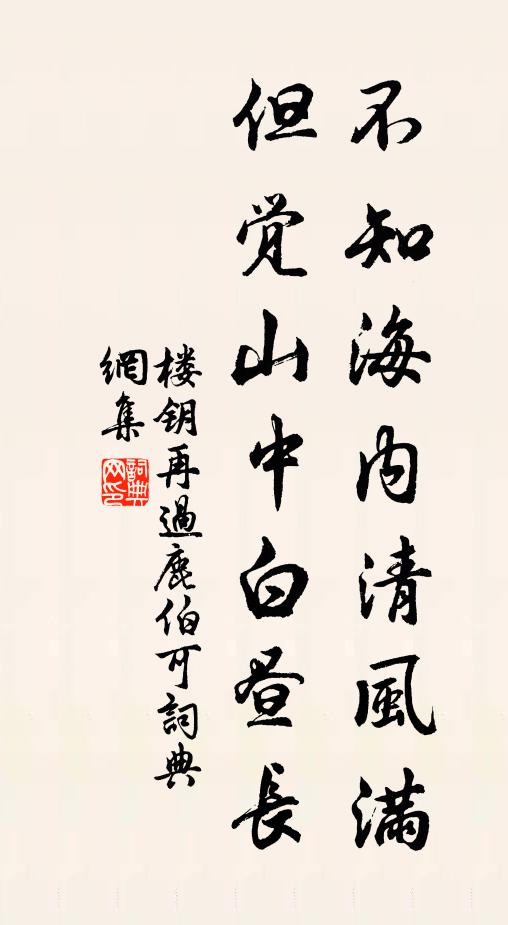 不知海内清風滿
但觉山中白昼長
楼钥再過鹿伯可詞典
網集
詞典网印